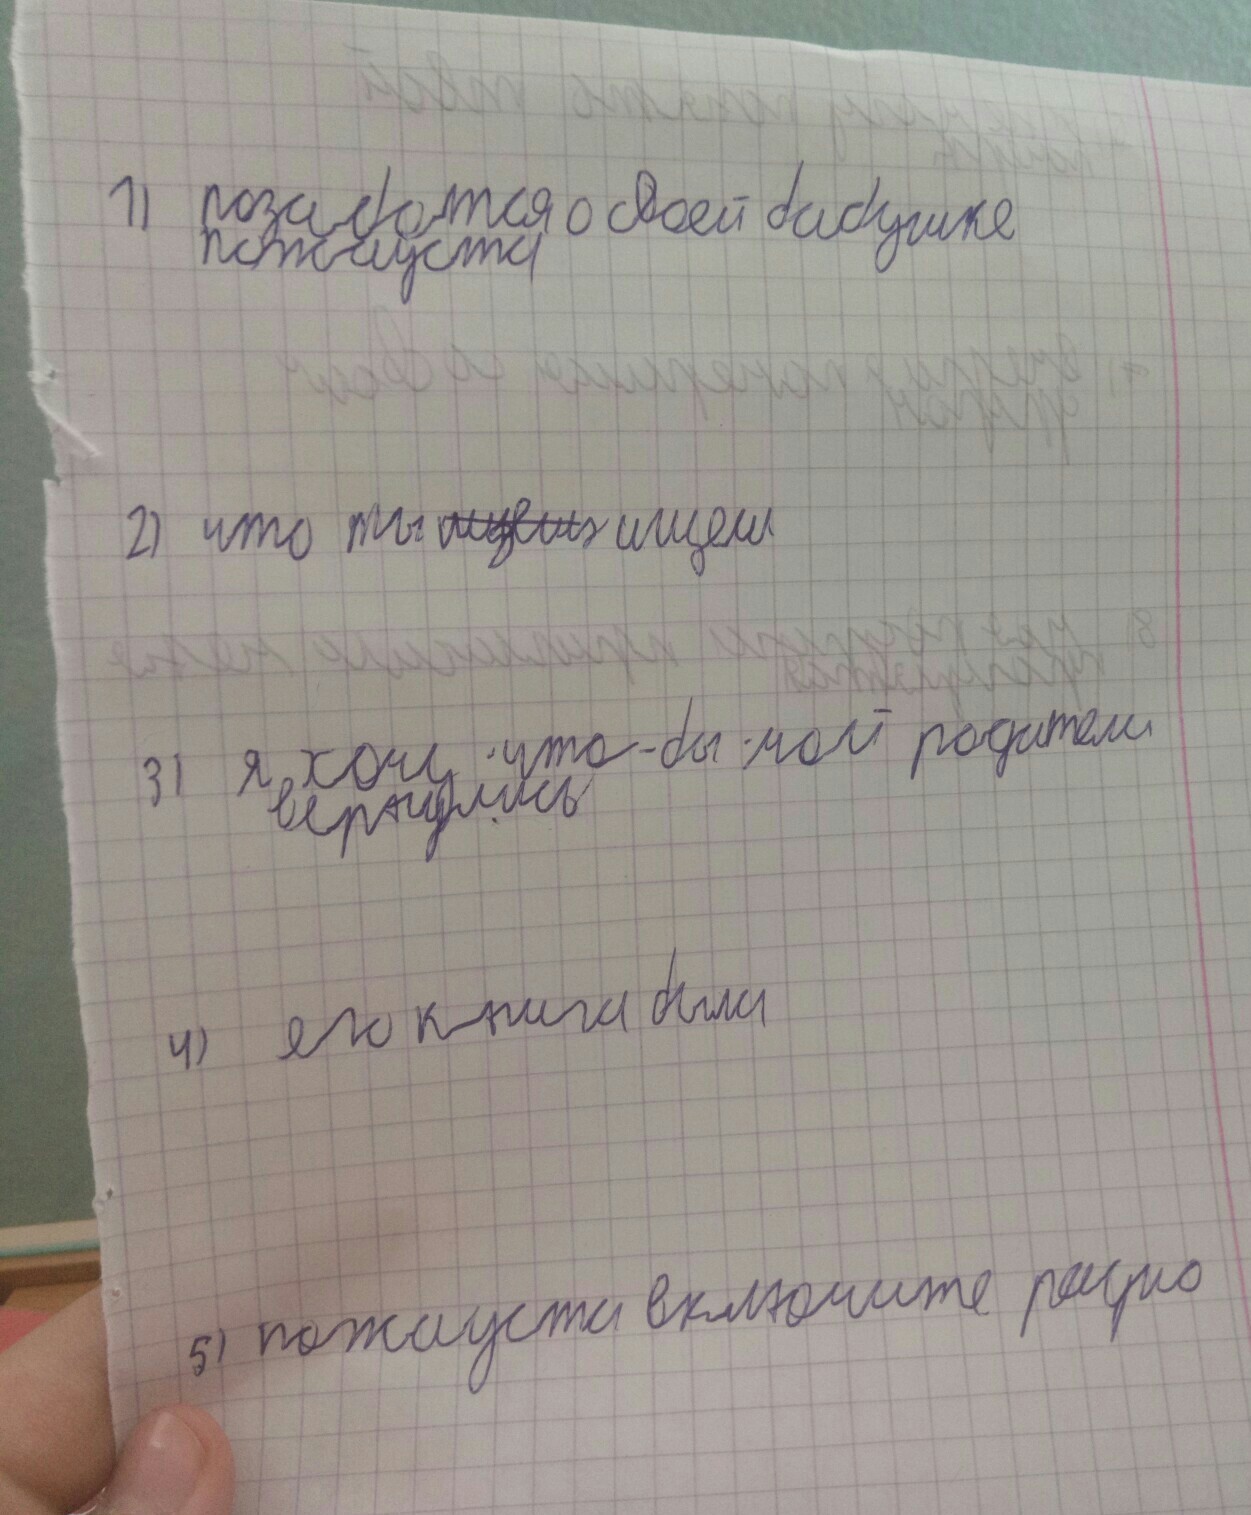 1) позаботся о своей бабушке
пожауста
2) что ты ищеш
3) я хочу что-бы мои родители
вернулись
4) его книга были
5) пожауста включите радио